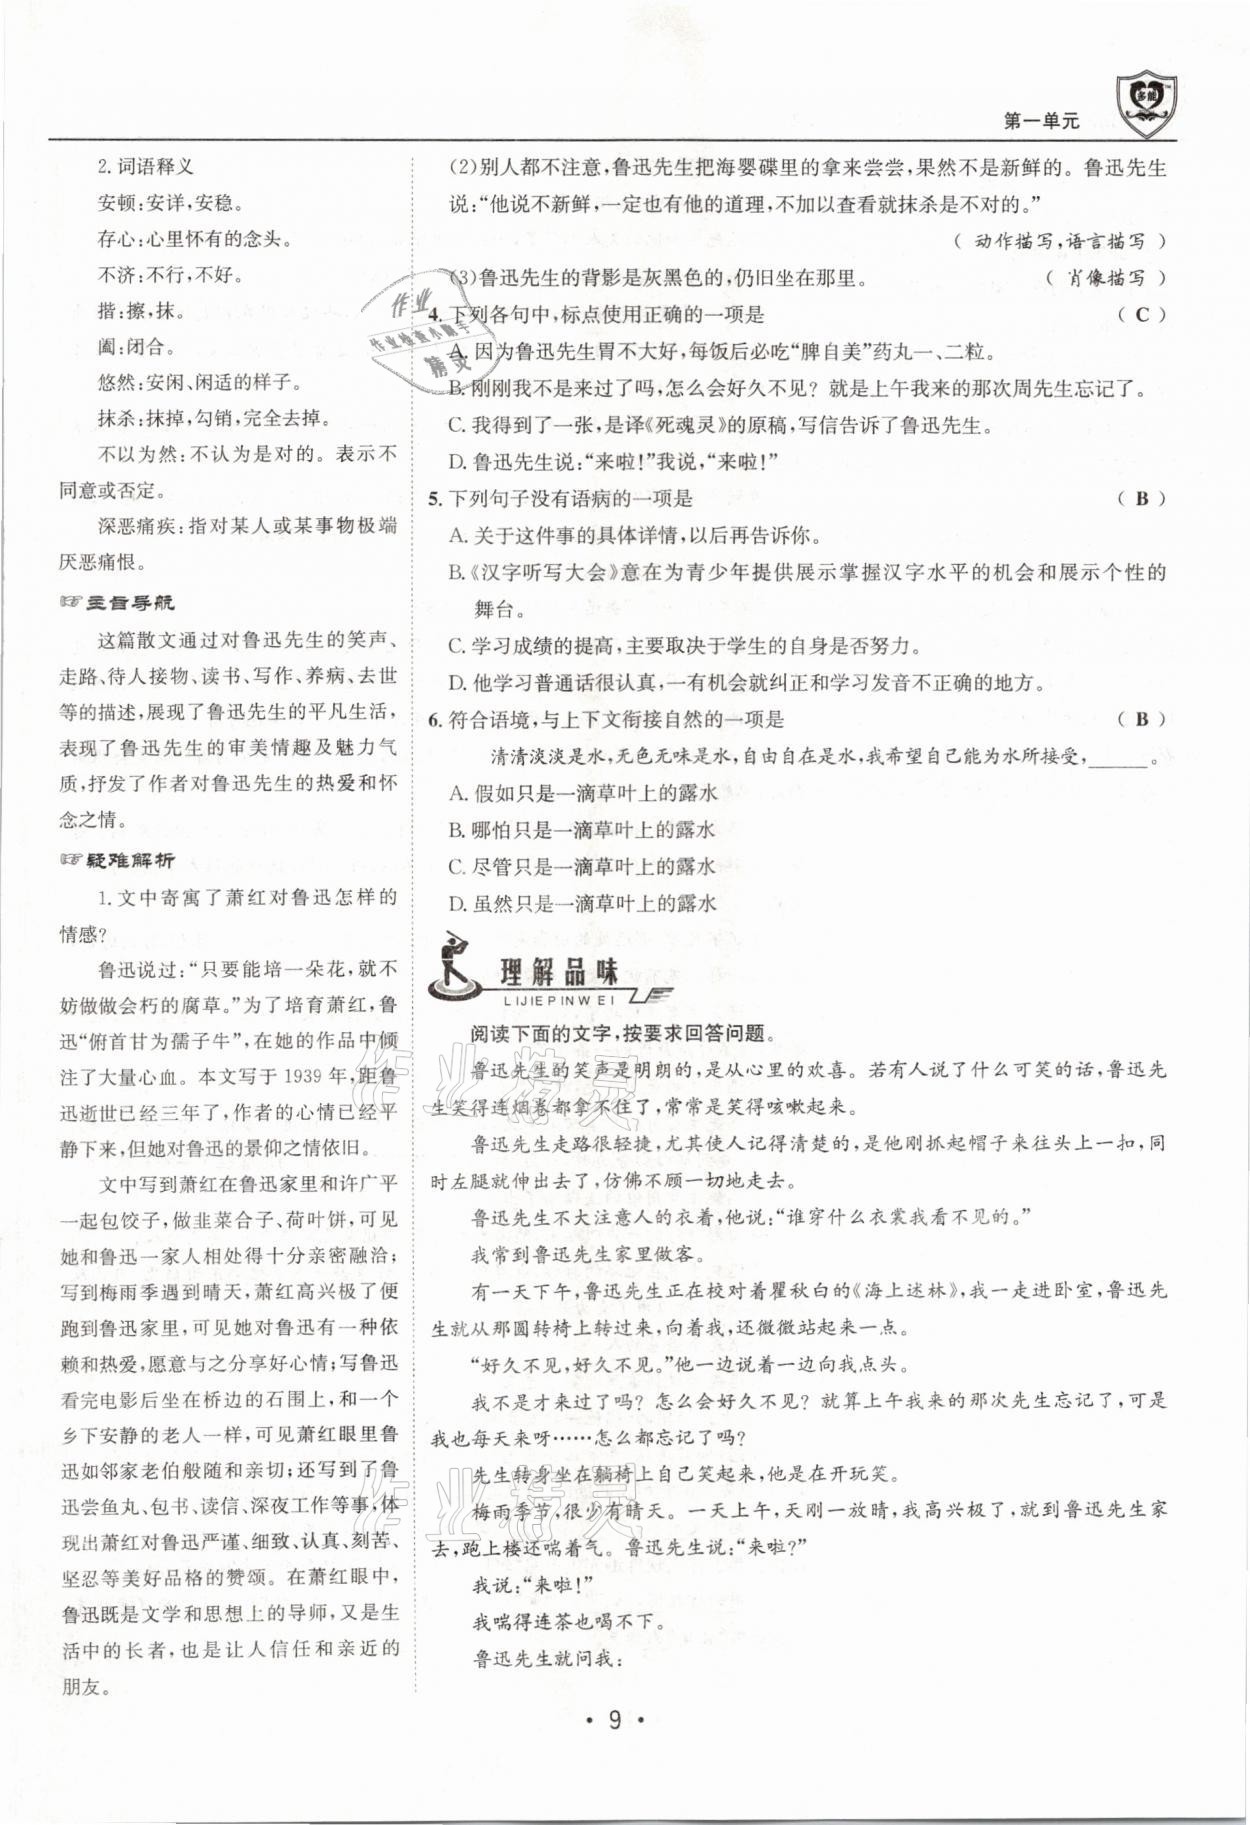 第一单元
多能
2. 词语释义
安顿:安详,安稳。
存心:心里怀有的念头。
不济:不行,不好。
揩:擦,抹。
阖:闭合。
悠然:安闲、闲适的样子。
抹杀:抹掉,勾销,完全去掉。
不以为然:不认为是对的。表示不
同意或否定。
深恶痛疾:指对某人或某事物极端
厌恶痛恨。
主旨导航
这篇散文通过对鲁迅先生的笑声、
走路、待人接物、读书、写作、养病、去世
等的描述,展现了鲁迅先生的平凡生活,
表现了鲁迅先生的审美情趣及魅力气
质,抒发了作者对鲁迅先生的热爱和怀
念之情。
疑难解析
1. 文中寄寓了萧红对鲁迅怎样的
情感?
鲁迅说过:“只要能培一朵花,就不
妨做做会朽的腐草。”为了培育萧红,鲁
迅“俯首甘为孺子牛”,在她的作品中倾
注了大量心血。本文写于 1939 年,距鲁
迅逝世已经三年了,作者的心情已经平
静下来,但她对鲁迅的景仰之情依旧。
文中写到萧红在鲁迅家里和许广平
一起包饺子,做韭菜合子、荷叶饼,可见
她和鲁迅一家人相处得十分亲密融洽;
写到梅雨季遇到晴天,萧红高兴极了便
跑到鲁迅家里,可见她对鲁迅有一种依
赖和热爱,愿意与之分享好心情;写鲁迅
看完电影后坐在桥边的石围上,和一个
乡下安静的老人一样,可见萧红眼里鲁
迅如邻家老伯般随和亲切;还写到了鲁
迅尝鱼丸、包书、读信、深夜工作等事,体
现出萧红对鲁迅严谨、细致、认真、刻苦、
坚忍等美好品格的赞颂。在萧红眼中,
鲁迅既是文学和思想上的导师,又是生
活中的长者,也是让人信任和亲近的
朋友。
(2)别人都不注意,鲁迅先生把海婴碟里的拿来尝尝,果然不是新鲜的。鲁迅先生
说:“他说不新鲜,一定也有他的道理,不加以查看就抹杀是不对的。”
( 动作描写,语言描写 )
(3)鲁迅先生的背影是灰黑色的,仍旧坐在那里。 ( 肖像描写 )
4. 下列各句中,标点使用正确的一项是 ( C )
A. 因为鲁迅先生胃不大好,每饭后必吃“脾自美”药丸一、二粒。
B. 刚刚我不是来过了吗,怎么会好久不见? 就是上午我来的那次周先生忘记了。
C. 我得到了一张,是译《死魂灵》的原稿,写信告诉了鲁迅先生。
D. 鲁迅先生说:“来啦!”我说,“来啦!”
5. 下列句子没有语病的一项是 ( B )
A. 关于这件事的具体详情,以后再告诉你。
B.《汉字听写大会》意在为青少年提供展示掌握汉字水平的机会和展示个性的
舞台。
C. 学习成绩的提高,主要取决于学生的自身是否努力。
D. 他学习普通话很认真,一有机会就纠正和学习发音不正确的地方。
6. 符合语境,与上下文衔接自然的一项是 ( B )
清清淡淡是水,无色无味是水,自由自在是水,我希望自己能为水所接受,______。
A. 假如只是一滴草叶上的露水
B. 哪怕只是一滴草叶上的露水
C. 尽管只是一滴草叶上的露水
D. 虽然只是一滴草叶上的露水
理解品味
LIJIEPINWEI
阅读下面的文字,按要求回答问题。
鲁迅先生的笑声是明朗的,是从心里的欢喜。若有人说了什么可笑的话,鲁迅先
生笑得连烟卷都拿不住了,常常是笑得咳嗽起来。
鲁迅先生走路很轻捷,尤其使人记得清楚的,是他刚抓起帽子来往头上一扣,同
时左腿就伸出去了,仿佛不顾一切地走去。
鲁迅先生不大注意人的衣着,他说:“谁穿什么衣裳我看不见的。”
我常到鲁迅先生家里做客。
有一天下午,鲁迅先生正在校对着瞿秋白的《海上述林》,我一走进卧室,鲁迅先
生就从那圆转椅上转过来,向着我,还微微站起来一点。
“好久不见,好久不见。”他一边说着一边向我点头。
我不是才来过了吗? 怎么会好久不见? 就算上午我来的那次先生忘记了,可是
我也每天来呀……怎么都忘记了吗?
先生转身坐在躺椅上自己笑起来,他是在开玩笑。
梅雨季节,很少有晴天。一天上午,天刚一放晴,我高兴极了,就到鲁迅先生家
去,跑上楼还喘着气。鲁迅先生说:“来啦?”
我说:“来啦!”
我喘得连茶也喝不下。
鲁迅先生就问我:
• 9 •
作业
作业检查小助手
精灵
作业精灵
作业精灵